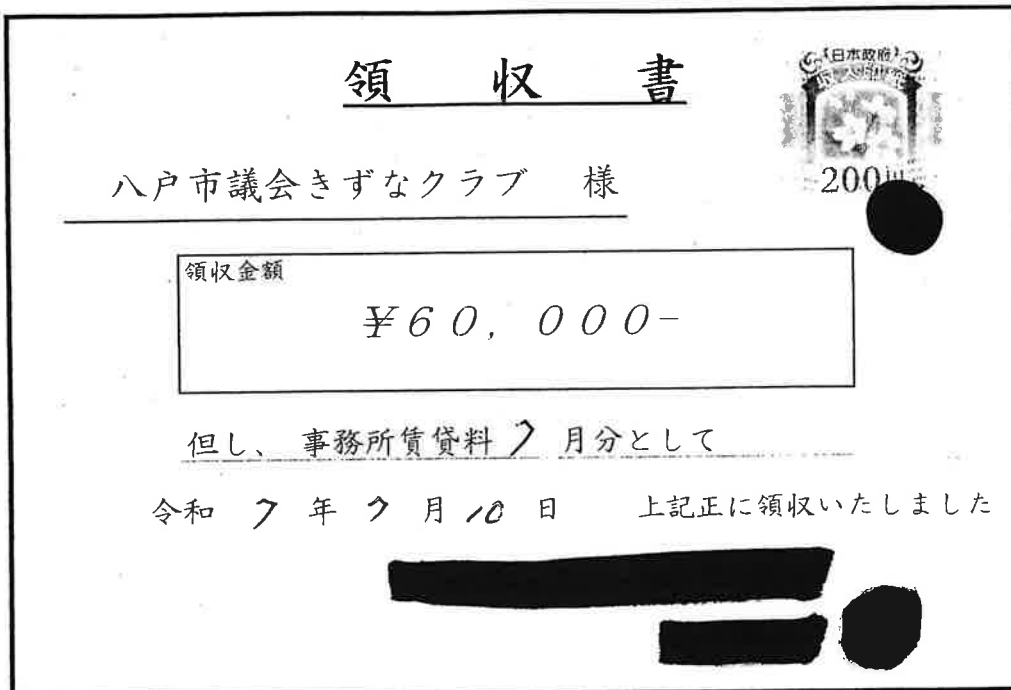 領収書
日本政府
200円
八戸市議会きずなクラブ 様
領収金額
￥60,000-
但し、事務所賃貸料7月分として
令和7年7月10日 上記正に領収いたしました